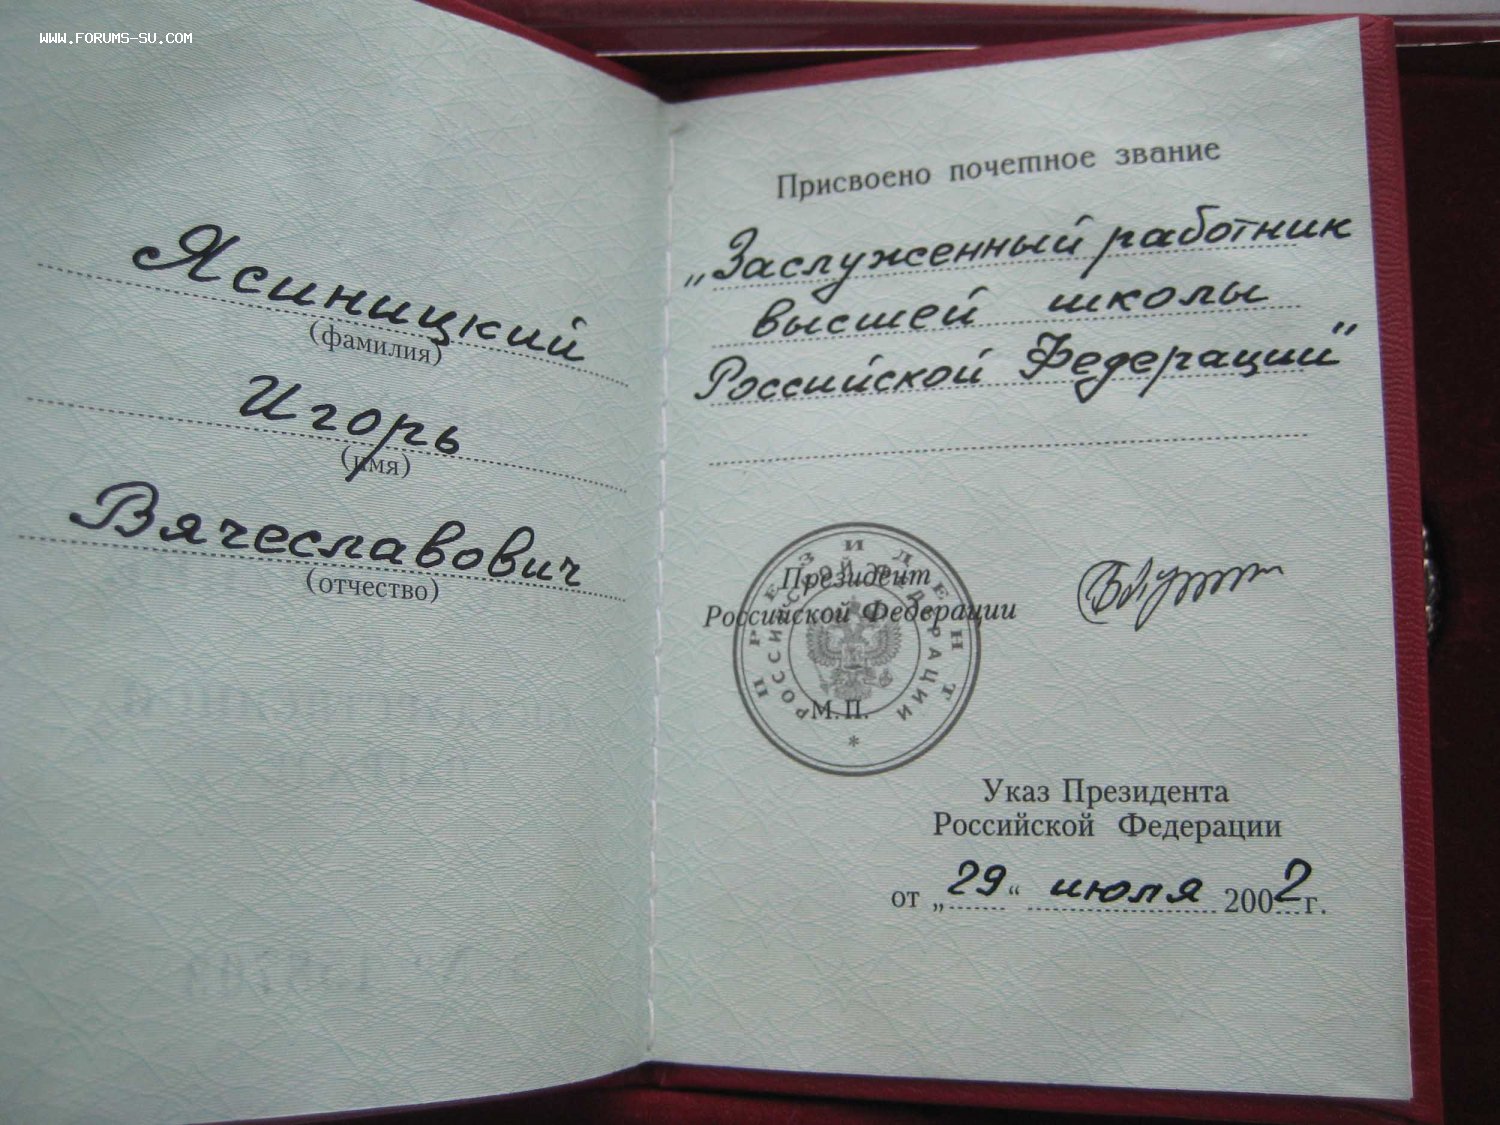 WWW.FORUMS-SU.COM
Ясиницкий
(фамилия)
Игорь
(имя)
Вячеславович
(отчество)
Присвоено почетное звание
„Заслуженный работник
высшей школы
Российской Федерации"
Президент
Российской Федерации
ПРЕЗИДЕНТ
РОССИЙСКОЙ ФЕДЕРАЦИИ
М.П.
*
Указ Президента
Российской Федерации
от „29“ июля 2002г.